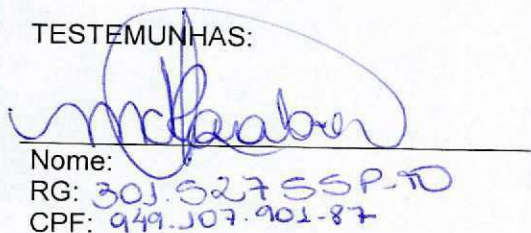 TESTEMUNHAS:
Nome:
RG: 301.527 SSP-TO
CPF: 949.107.901-87